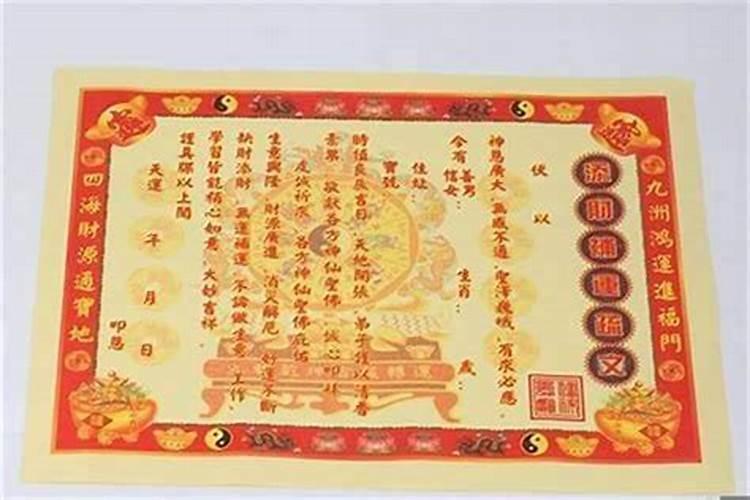 九洲鴻運進福門
添財補運疏文
伏以
神恩廣大 無感不通 聖澤巍峨 有求必應
今有善男信女：生肖：歲：
住址：
寶號
時值良辰吉日 天地開張 弟子謹以清香
素果 敬獻各方神仙聖佛 誠心叩拜
虔誠祈求 各方神仙聖佛庇佑
生意興隆 財源廣進 消災解厄 好運不斷
缺財添財 無運補運 不論做生意 工作、
學習皆能稱心如意 大妙吉祥
謹具疏以上聞
天運 年 月 日 叩懇
四海財源通寶地